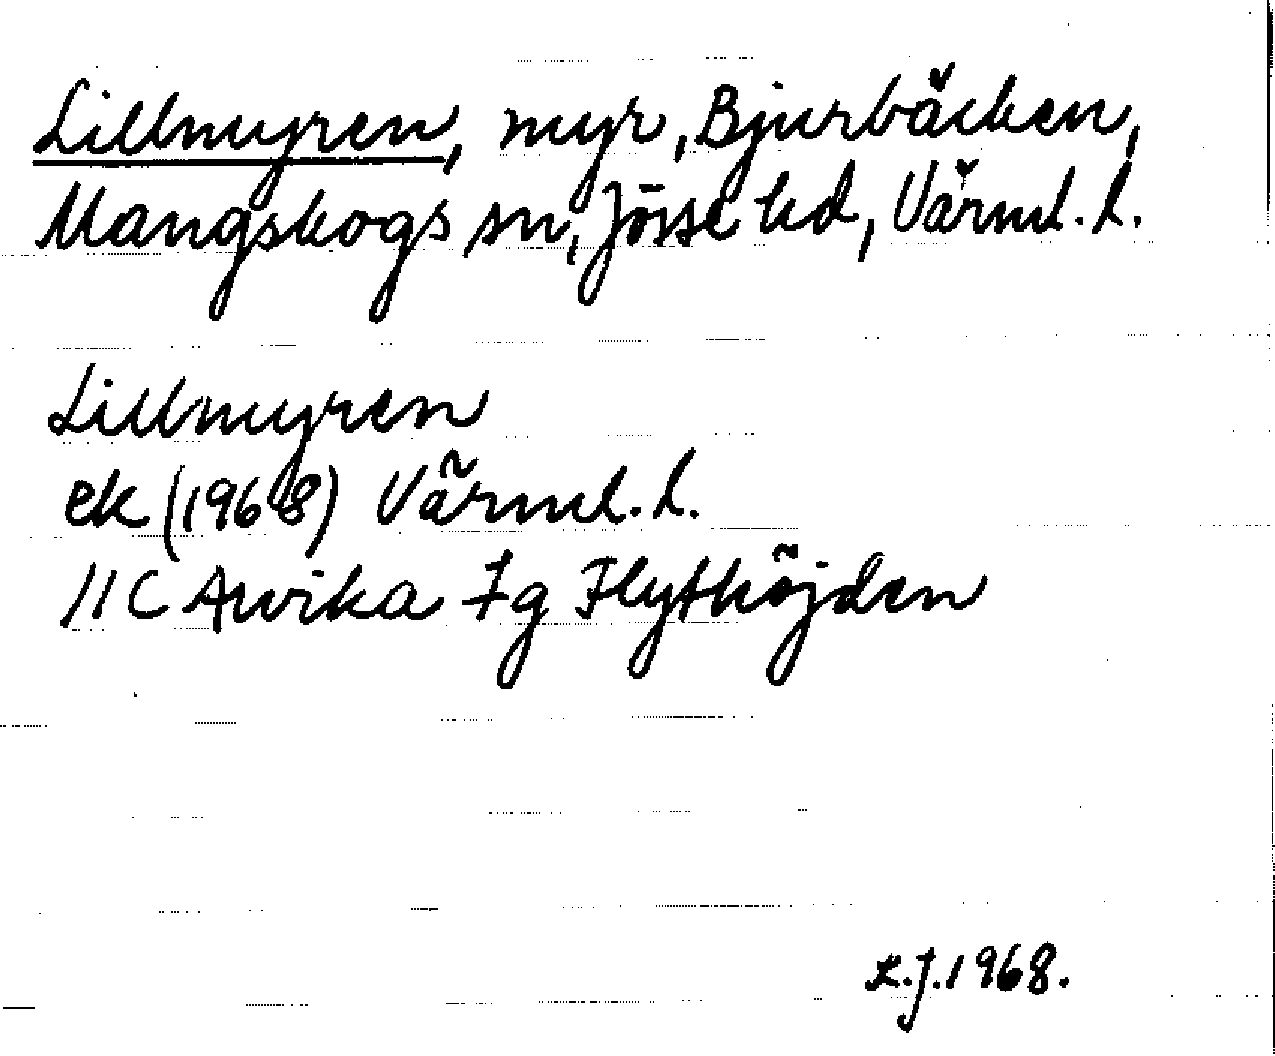 Lillmyren, myr, Bjurbäcken,
Mangskogs sn, Jösse hd, Värml. l.
Lillmyren
ek (1968) Värml. l.
11C Arvika 7g Flythöjden
L.J. 1968.